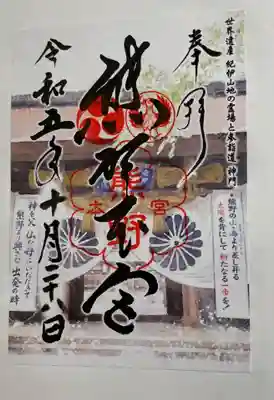 世界遺産 紀伊山地の霊場と参詣道 神門
熊野の山・海より差し昇る
太陽を背にして新たなる一歩を！
奉拝
熊野本宮
熊野
本宮
令和五年十月二十日
神を父 仏を母にいただきて
熊野より興さむ 出発の時